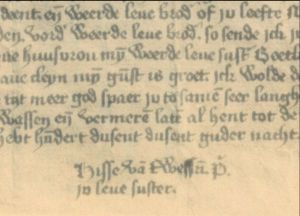 doent. en weerde leve brod' of ju leefte
den vord' weerde leve brod'. so sende ick ju
huusvrou myn weerde leve sust'
cleyn myn gunst is groet. ick wolde d
tyt meer god spaer ju to samen seer langh
wassen en vermeren late al hent tot de
hebt hundert dusent dusent guder nacht
Hisse van
ju leve suster.